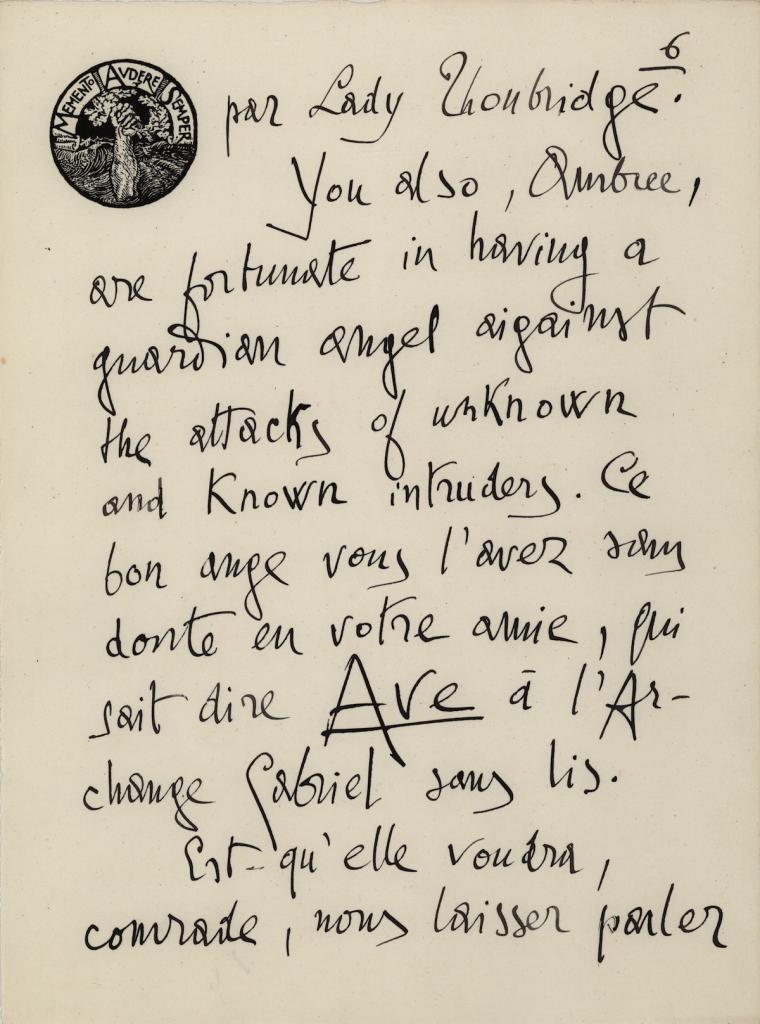 6
MEMENTO AVDERE SEMPER
par Lady Thoubridge.
You also, Ombree,
are fortunate in having a
guardian angel aigainst
the attacks of unknown
and known intruders. Ce
bon ange vous l'avez sans
doute en votre amie, qui
sait dire Ave à l'Ar-
change Gabriel sans lis.
Est-qu'elle voudra,
comrade, nous laisser parler